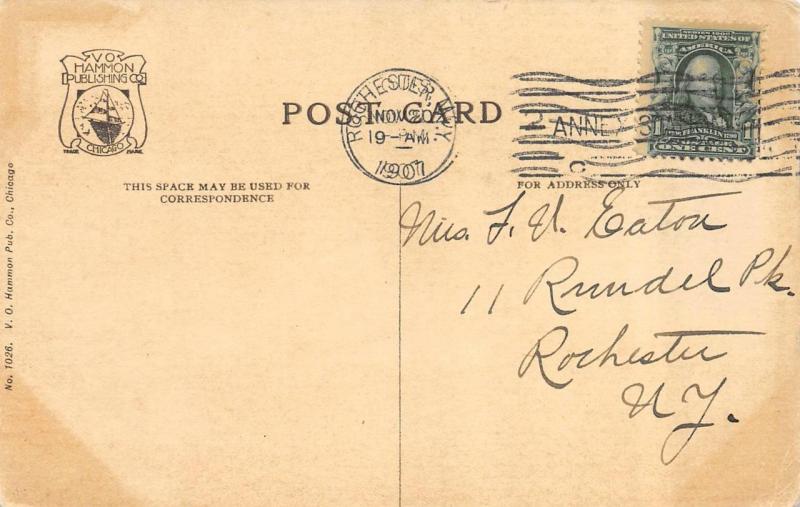 V O
HAMMON
PUBLISHING CO
CHICAGO
TRADE MARK
POST CARD
ROCHESTER, N.Y.
NOV 20
AM
1907
ANNEX
C
SERIES 1902
UNITED STATES OF
AMERICA
FRANKLIN
ONE CENT
THIS SPACE MAY BE USED FOR
CORRESPONDENCE
FOR ADDRESS ONLY
No. 1026. V. O. Hammon Pub. Co., Chicago
Mrs. F. V. Eaton
11 Rundel Pk.
Rochester
N.Y.